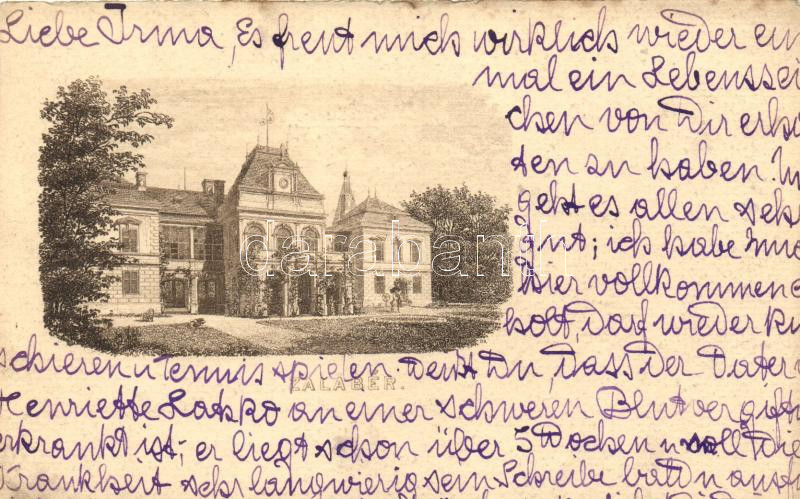 Liebe Irma, Es freut mich wirklich wieder ein
mal ein Lebenszei
chen von Dir erhal
ten zu haben.
geht es allen sehr
gut; ich habe mich
hier vollkommen e
holt, darf wieder ku
schieren u tennis spielen. Denkt Du, dass der Vater v
ZALABÉR.
Henriette an einer schweren Blutvergift
erkrankt ist; er liegt schon über 5 Wochen u soll die
Krankheit sehr langwierig sein Schreibe bald u ausf
darabanth.com